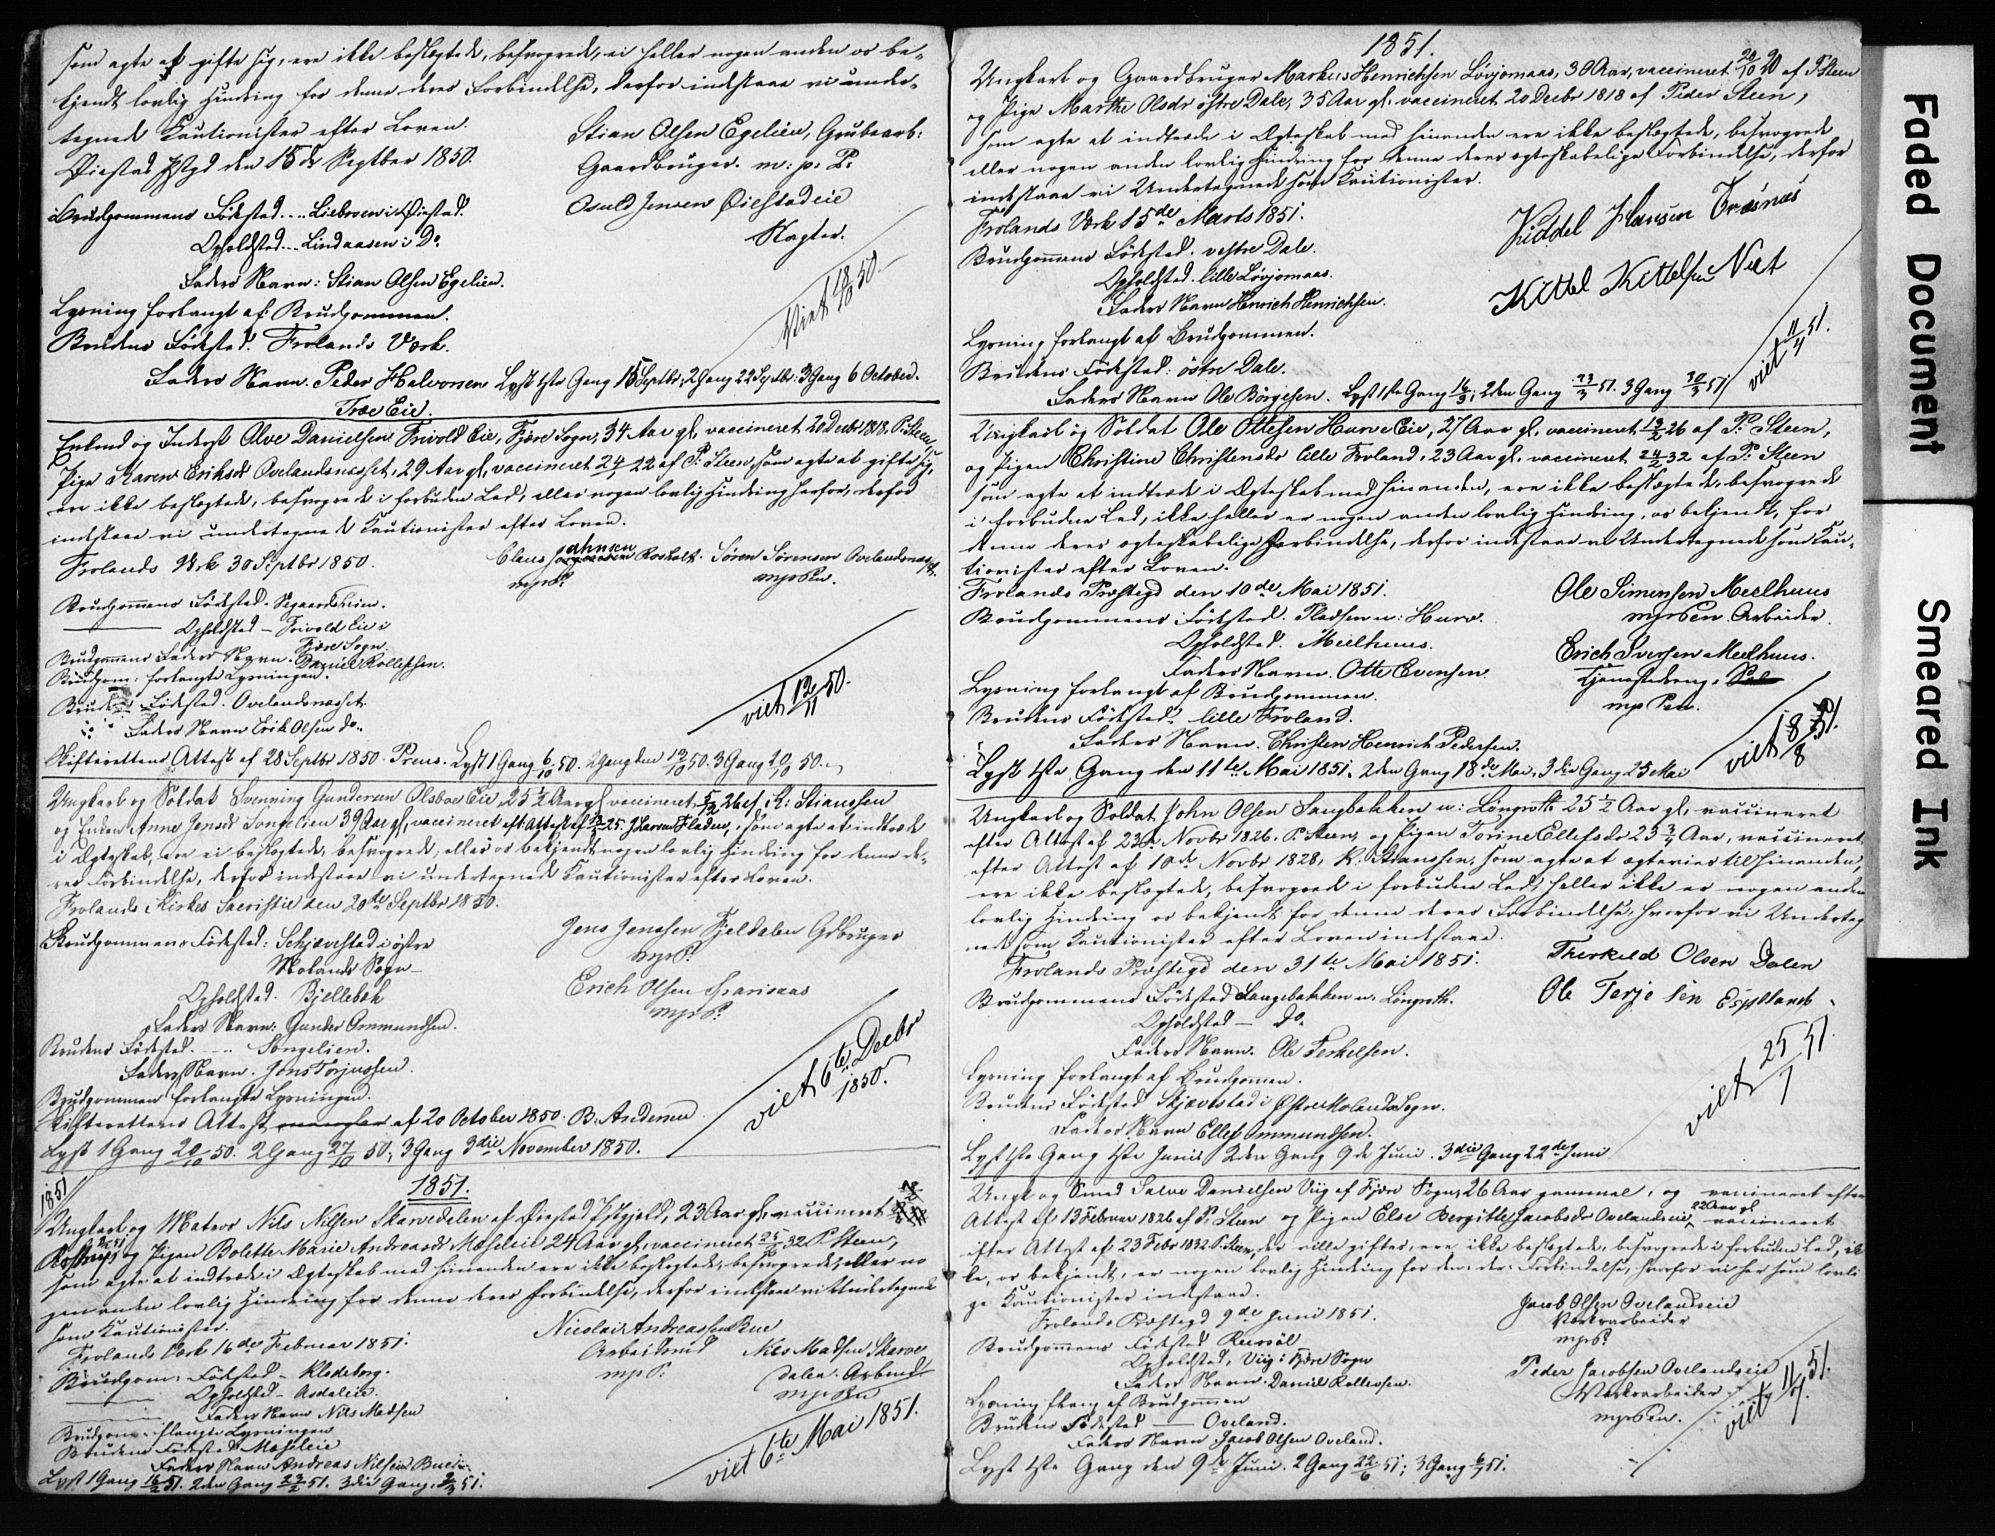 som agte at gifte sig, ere ikke beslægtede, besvogrede, ei heller nogen anden os be-
kjendt lovlig Hindring for denne deres Forbindelse, derfor indstaae vi under-
tegnede Kautionister efter Loven.
Øiestad Pstgd den 15de Septber 1850.
Stian Olsen Egelien, Grubearb:
Gaardbruger. m: p: P:
Osuld Jensen Øiestadeie
Brudgommens Fødested Liebroen i Øiestad.
Opholdsted Lindaasen i Do
Faders Navn: Stian Olsen Egelien.
Lysning forlangt af Brudgommen.
Brudens Fødested. Frolands Værk.
Faders Navn. Peder Halvorsen
Træ Eie.
Lyst 1ste Gang 15 Septbr: 2 Gang 22 Septbr: 3 Gang 6 October.
Viet 18/10 50.
Enkemd og Inderst Alve Danielsen Trivold Eie, Fjære Sogn, 34 Aar gl, vaccineret 20 Decbr 1818. P. Steen,
Pige Karen Eriksdr Ovelandsnæsset, 29 Aar gl, vaccineret 24/ 22 af P: Steen, som agte at gifte sig,
ere ikke beslægtede, besvogrede i forbuden Led, eller nogen lovlig Hindring herfor, derfor
indstaae vi undertegnede Kautionister efter Loven.
Frolands Værk 30 Septbr 1850.
Claus Johnsen Roshalt. Søren Sørensen Ovelandsnæsset.
mpP. mpPen.
Brudgommens Fødested.
Opholdsted - Trivold Eie i
Fjære Sogn.
Brudgommens Faders Navn. Daniel Rollefsen.
Brudgom: forlangte Lysningen.
Brudens Fødested. Ovelandsnæsset.
Faders Navn Erik Olsen do.
Skifterettens Attest af 28 Septbr 1850. Preus. Lyst 1 Gang 6/10 50. 2 Gang den 13/10 50. 3 Gang 20/10 50.
viet 12/11 50.
Ungkarl og Soldat Svenning Gundersen Olsbo Eie, 25 1/2 Aar gl vaccineret 5/ 26 af K: Stiansen
og Enken Anne Jensdr Songelien 39 Aar gl, vaccineret eft Attest af 25. J. Larsen Fladen, som agte at indtræde
i Ægteskab, ere ei beslægtede, besvogrede, eller os bekjendt nogen lovlig Hindring for denne de-
res Forbindelse, derfor indstaae vi undertegnede Kautionister efter Loven.
Frolands Kirkes Sacristie den 20de Septbr 1850.
Jens Jensen Fjeldalen Gdbruger
mpP.
Erich Olsen
mpP.
Brudgommens Fødested: Schjævestad i østre
Molands Sogn
Opholdsted. Bjellebek
Faders Navn: Gunder Ommundsen.
Brudens Fødested. Songelien.
Faders Navn. Jens Torjussen.
Brudgommen forlangte Lysningen.
Skifterettens Attest af 20 October 1850. B. Andersen
Lyst 1 Gang 20/10 50. 2 Gang 27/10 50; 3 Gang 3die November 1850.
viet 6te Decbr
1850.
1851
1851.
Ungkarl og Matros Nils Nilsen Skarvedalen af Øiestad Pstgjeld, 23 Aar gl, vaccineret
og Pigen Bolette Marie Andreasdr Mæseleie 24 Aar gl, vaccineret 25/ 32 P. Steen,
som agte at indtræde i Ægteskab med hinanden ere ikke beslægtede, besvogrede, eller no-
gen anden lovlig Hindring for denne deres Forbindelse, derfor indstaae vi Undertegnede
som Kautionister.
Frolands Værk 16de Februar 1851.
Nicolai Andreassen Bue
Arbeidsmd
mpP.
Nils Madsen Skarve
dalen. Arbmd
mpPen
Brudgom: Fødested - Klodeborg.
Opholdsted - Asdaleie.
Faders Navn Nils Madsen
Brudgom: flangte Lysningen
Brudens Fødested Mæseleie
Faders Navn Andreas Nilsen Bueie.
Lyst 1 Gang 16/2 51. 2den Gang 23/2 51. 3die Gang 2/3 51.
viet 6te Mai 1851.
1851.
Ungkarl og Gaardbruger Markus Henrichsen Løvjomaas, 30 Aar, vaccineret 20/10 20 af P. Steen
og Pige Marthe Olsdr østre Dale, 35 Aar gl. vaccineret 20 Decbr 1818 af Peder Steen,
som agte at indtræde i Ægteskab med hinanden ere ikke beslægtede, besvogrede
eller nogen anden lovlig Hindring for denne deres ægteskabelige Forbindelse, derfor
indestaae vi Undertegnede som Kautionister.
Frolands Værk 15de Marts 1851.
Kiddel Hansen Træsnæs
Kittel Kittelsen Næt
Brudgommens Fødested. vestre Dale.
Opholdsted. lille Løvjomaas.
Faders Navn Henrich Henrichsen.
Lysning forlangt af Brudgommen.
Brudens Fødested: østre Dale.
Faders Navn Ole Børgesen. Lyst 1ste Gang 16/3; 2den Gang 23/3 51. 3 Gang 30/3 51.
viet 11/4 51.
Ungkarl og Soldat Ole Ottesen Hurve Eie, 27 Aar gl. vaccineret 19/2 26 af P. Steen,
og Pigen Christine Christensdr lille Froland, 23 Aar gl. vaccineret 24/2 32 af P. Steen
som agte at indtræde i Ægteskab med hinanden, ere ikke beslægtede, besvogrede
i forbudne Led, ikke heller er nogen anden lovlig Hindring, os bekjendt, for
denne deres ægteskabelige Forbindelse, derfor indestaae vi Undertegnede som Kau-
tionister efter Loven.
Frolands Præstegd den 10de Mai 1851.
Ole Simonsen Meelhuus
mpPen Arbeider.
Erich Iversen Meelhuus.
mpPen.
Brudgommens Fødested. Pladsen u: Hurv.
Opholdsted. Meelhuus.
Faders Navn. Otte Evensen
Lysning forlangt af Brudgommen.
Brudens Fødested. lille Froland.
Faders Navn. Christen Henrich Pedersen.
Lyst 1ste Gang den 11te Mai 1851. 2den Gang 18de Mai, 3die Gang 25 Mai
viet 18/8 51.
Ungkarl og Soldat John Olsen Langbakken u: Løngroth 25 1/2 Aar gl, vaccineret
efter Attest af 23de Novbr 1826. P. Steen, og Pigen Torine Ellefsdr 23 3/4 Aar, vaccineret
efter Attest af 10de Novbr 1828, K. Stianssen, som agte at ægtevies til hinanden,
ere ikke beslægtede, besvogrede i forbuden Led, heller ikke er nogen anden
lovlig Hindring os bekjendt for denne deres Forbindelse, hvorfor vi Underteg
nede som Kautionister efter Loven indestaae.
Frolands Præstegd den 31te Mai 1851.
Therkeld Olsen Dalen
Ole Terjesen
Brudgommens Fødested Langebakken u. Løngroth.
Opholdsted - do
Faders Navn. Ole Terkelsen.
Lysning forlangt af Brudgommen.
Brudens Fødested Skjævestad i Østre Molands Sogn.
Faders Navn Ellef Ommundsen.
Lyst 1ste Gang 1ste Junii 2den Gang 9de Juni. 3die Gang 22de Juni
viet 25/7 51
Ungk og Smed Salve Danielsen Viig af Fjære Sogn, 26 Aar gammel, og vaccineret efter
Attest af 13 Februar 1826 af P. Steen og Pigen Else Bergitte Jacobsdr Ovelandseie, 22 Aar gl vaccineret
efter Attest af 23 Febr 1832 P. Steen, der ville giftes, ere ikke beslægtede, besvogrede i forbuden Led, ik
ke, os bekjendt, er nogen lovlig Hindring for den: der: Forbindelse, hvorfor vi her som lovli
ge Kautionister indestaae.
Frolands Præstegd 9de Juni 1851.
Jacob Olsen Ovelandseie
Værksarbeider
mpP.
Peder Jacobsen Ovelandseie
Værksarbeider
mpPen.
Brudgommens Fødested
Opholdsted, Viig i Fjære Sogn
Faders Navn. Daniel Rollevsen.
Lysning flang af Brudgommen
Brudens Fødested Oveland.
Faders Navn Jacob Olsen Oveland.
Lyst 1ste Gang den 9de Juni. 2 Gang 22/6 51; 3 Gang 6/7 51.
viet 11/7 51.
Faded Document
Smeared Ink